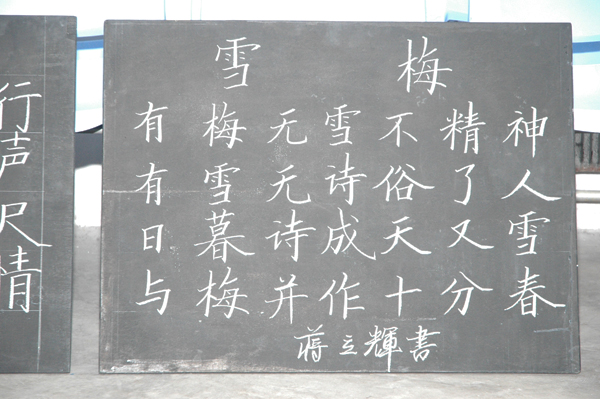 行
声
尺
情
雪 梅
有梅无雪不精神
有雪无诗俗了人
日暮诗成天又雪
与梅并作十分春
蒋立輝書